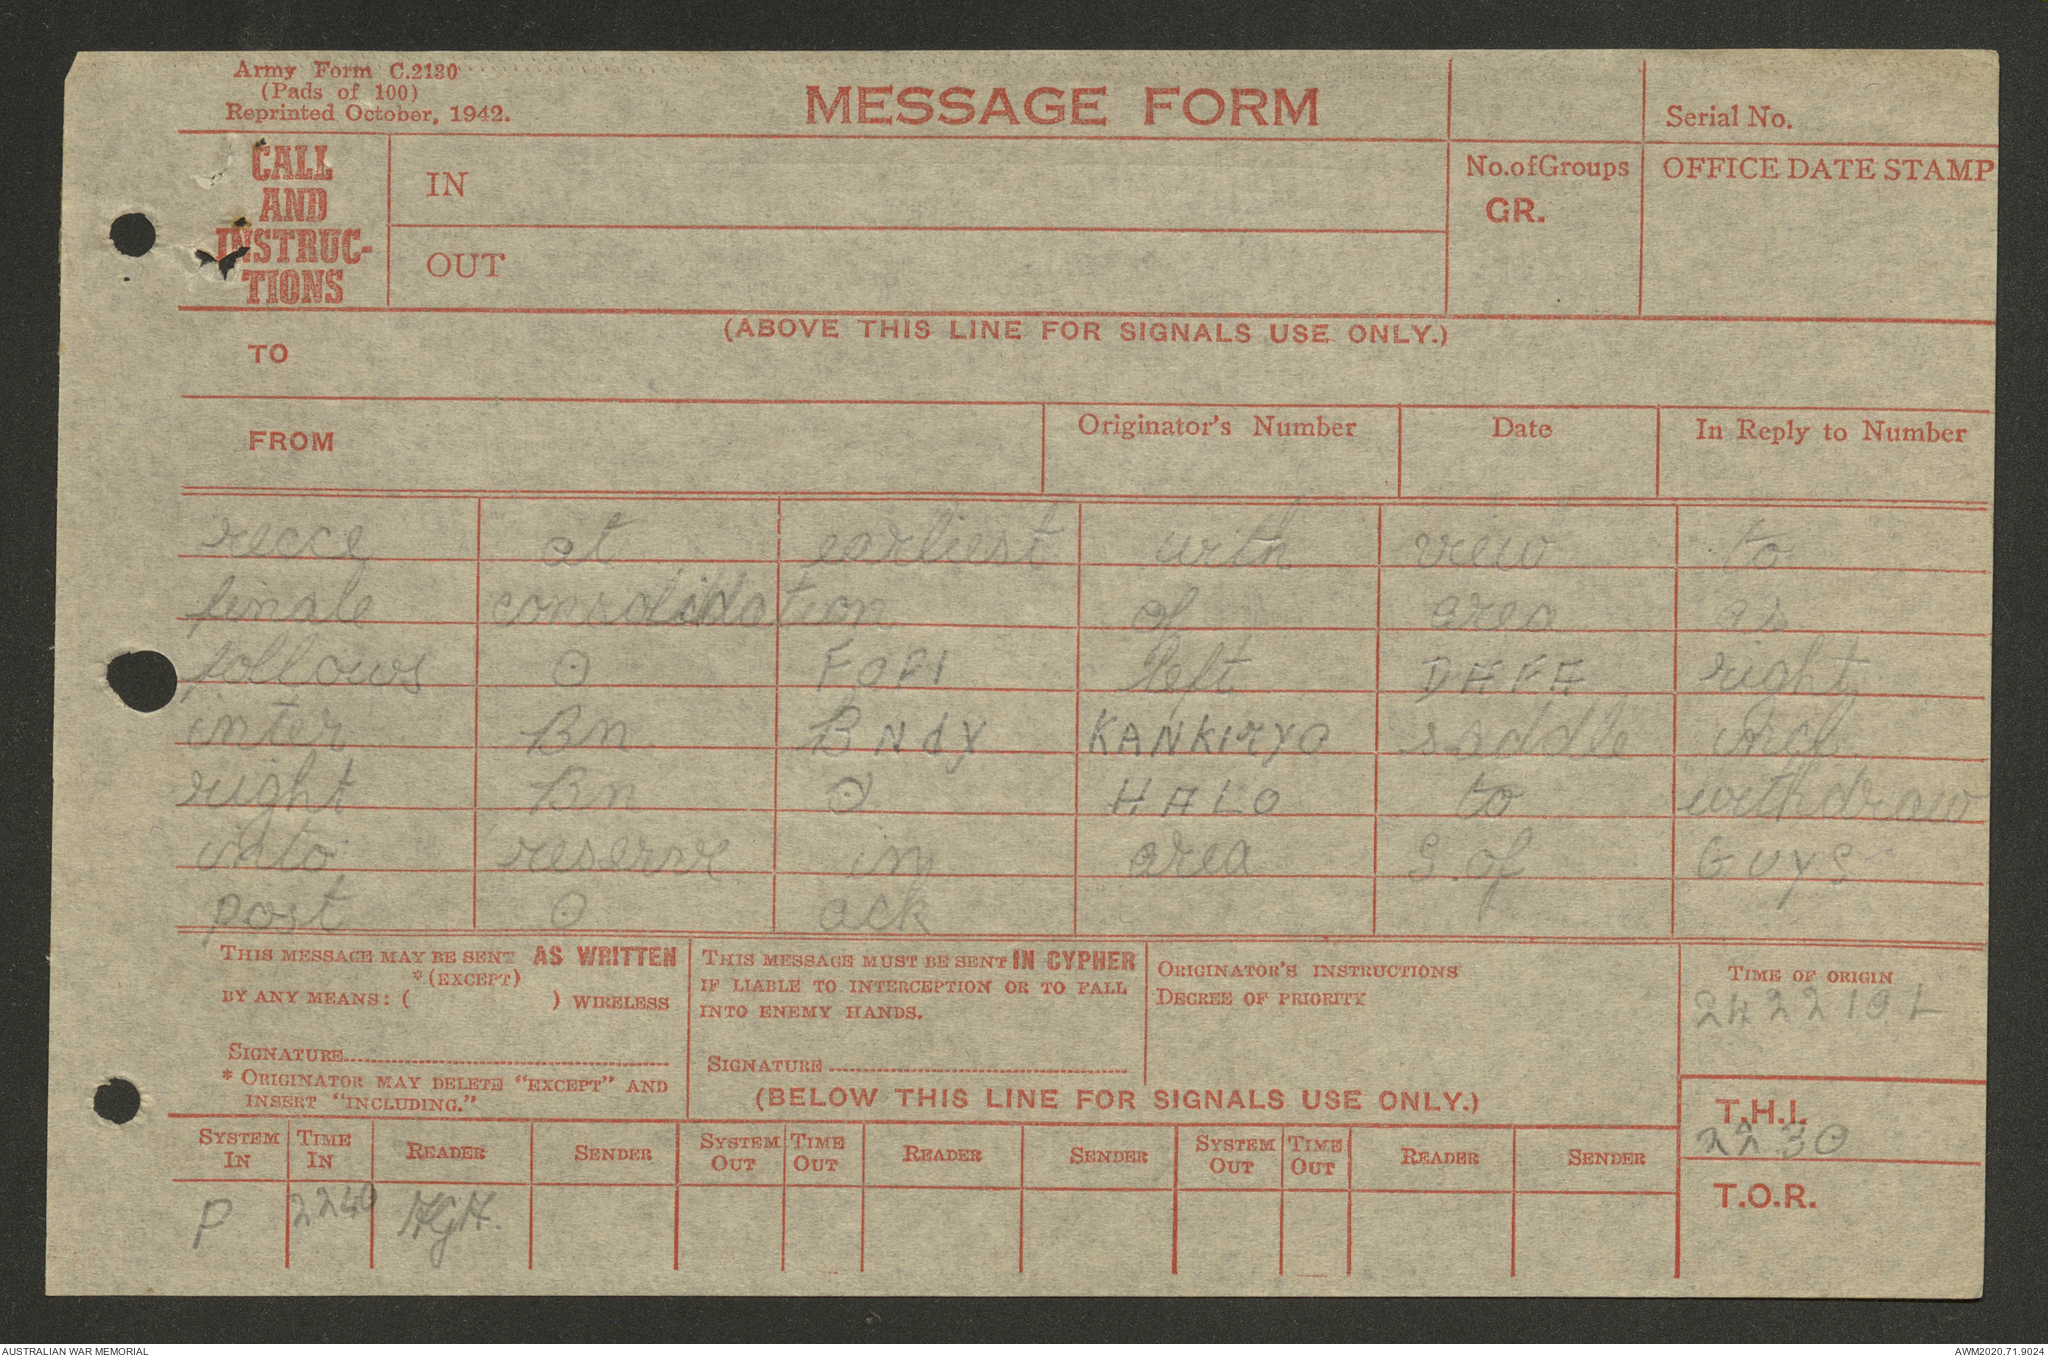 Army Form C.2130
(Pads of 100)
Reprinted October, 1942.
MESSAGE FORM
Serial No.
CALL
AND
INSTRUC-
TIONS
IN
OUT
No. of Groups
GR.
OFFICE DATE STAMP
(ABOVE THIS LINE FOR SIGNALS USE ONLY.)
TO
FROM
Originator's Number
Date
In Reply to Number
recce at earliest with view to
finale consolidation of area as
follows O FOPI left DAFA right
inter Bn BNdY KANKIRYO saddle incl
right Bn O HALO to withdraw
into reserve in area S. of GUYS
post O ack
THIS MESSAGE MAY BE SENT AS WRITTEN
*(EXCEPT)
BY ANY MEANS: ( ) WIRELESS
SIGNATURE
* ORIGINATOR MAY DELETE "EXCEPT" AND
INSERT "INCLUDING."
THIS MESSAGE MUST BE SENT IN CYPHER
IF LIABLE TO INTERCEPTION OR TO FALL
INTO ENEMY HANDS.
SIGNATURE
ORIGINATOR'S INSTRUCTIONS
DEGREE OF PRIORITY
TIME OF ORIGIN
242210L
(BELOW THIS LINE FOR SIGNALS USE ONLY.)
T.H.I.
2230
T.O.R.
SYSTEM IN TIME IN READER SENDER SYSTEM OUT TIME OUT READER SENDER SYSTEM OUT TIME OUT READER SENDER
P 2240 HGH.
AUSTRALIAN WAR MEMORIAL
AWM2020.71.9024